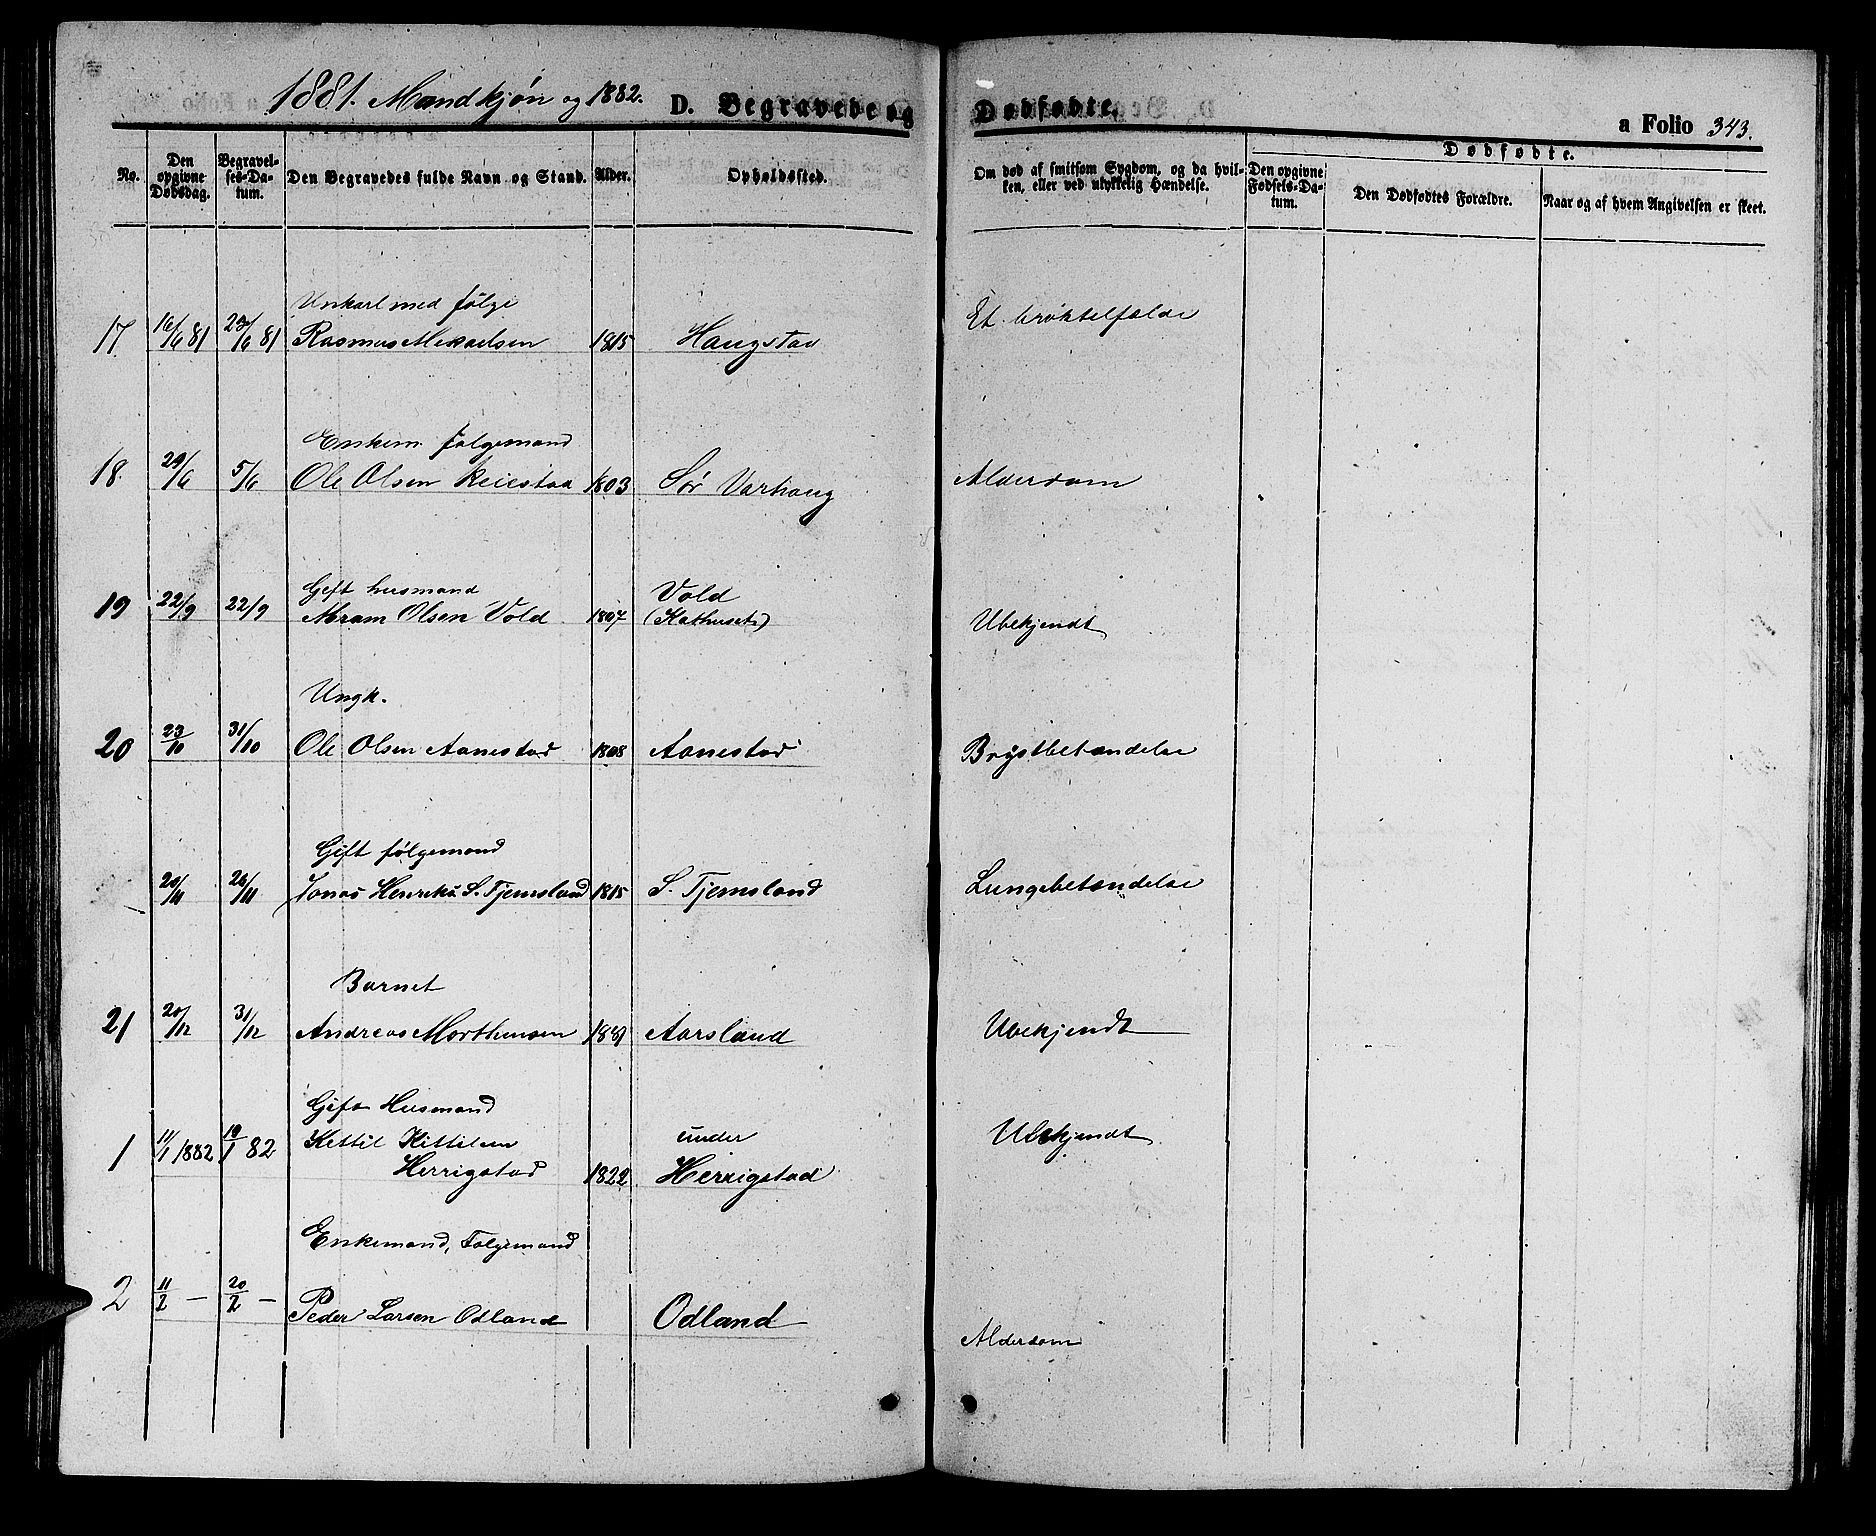 1881. Mandkjøn og 1882. D. Begravede og Dødfødte. a Folio 343.
No. Den opgivne Dødsdag. Begravelses-Datum. Den Begravedes fulde Navn og Stand. Alder. Opholdssted. Om død af smitsom Sygdom, og da hvilken, eller ved ulykkelig Hændelse. Dødfødte.
Den opgivne Fødsels-Datum. Den Dødfødtes Forældre. Naar og af hvem Angivelsen er skeet.
Unkarl med følge
17. 16/6 81 23/6 81 Rasmus Mikaelsen 1815 Haugstad Et brøktelfælde
Enkem. følgemand
18. 29/6 5/6 Ole Olsen Reiestad 1803 Sør Varhaug Alderdom
Gift husmand
19 22/9 22/9 Abram Olsen Vold 1807 Vold (Kathuset) Ubekjendt
Ungk.
20 23/10 31/10 Ole Olsen Aanestad 1808 Aanestad Brystbetændelse
Gift følgemand
20/11 26/11 Jonas Henriks. S. Tjemsland 1815 S. Tjemsland Lungebetændelse
Barnet
21 20/12 31/12 Andreas Morthensen 1881 Aarsland Ubekjendt
Gift Husmand
1 11/1 1882 19/1 82 Kettil Kittilsen under Ubekjendt
Herrigstad 1822 Herrigstad
Enkemand, Følgemand
2 11/2 — 20/2 — Peder Larsen Odland Odland Alderdom